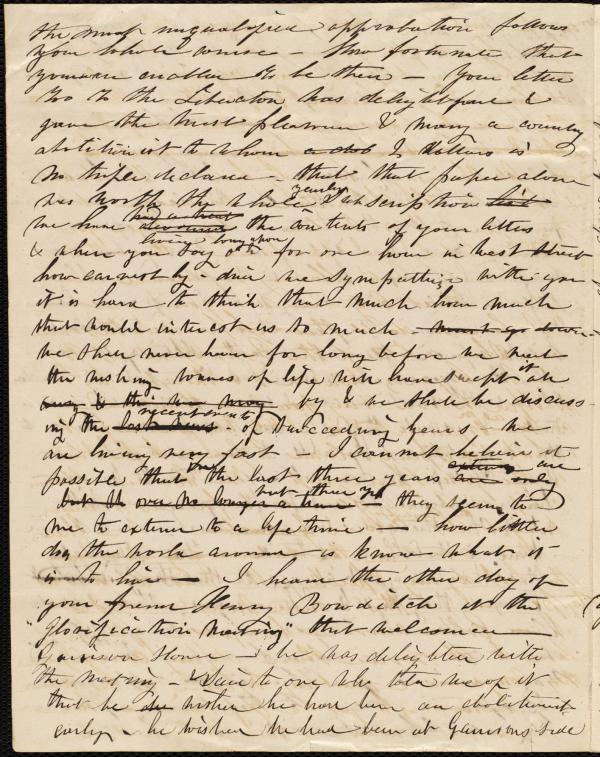 the most unqualified approbation follows
your whole course – How fortunate that
you were enabled to be there – Your letter
too to the Liberator was delightful &
gave the truest pleasure to many a country
abolitionist to whom 2 dollars is
no trifle declared – that that paper alone
was worth the whole yearly subscription list
we have had a treat living long upon the contents of your letters
& when you say oh for one hour in West Street
how earnestly dear we sympathize with you
it is hard to think that much how much
that would interest us so much – must go down
we shall never hear for long before we meet
the rushing waves of life will have swept it all
by & we shall be discuss-
ing the recent events last news – of succeeding years – we
are living very fast – I cannot believe it
possible that the last three years are only
but three yrs – they seem to
me to extend to a life time – how little
does the world around us know what it
is to live – I heard the other day of
your friend Henry Bowditch at the
"Glorification Meeting" that welcomed
Garrison Home – he was delighted with
the meeting – & said to one who told me of it
that he wished he had been an abolitionist
early – he wished he had been at Garrisons side